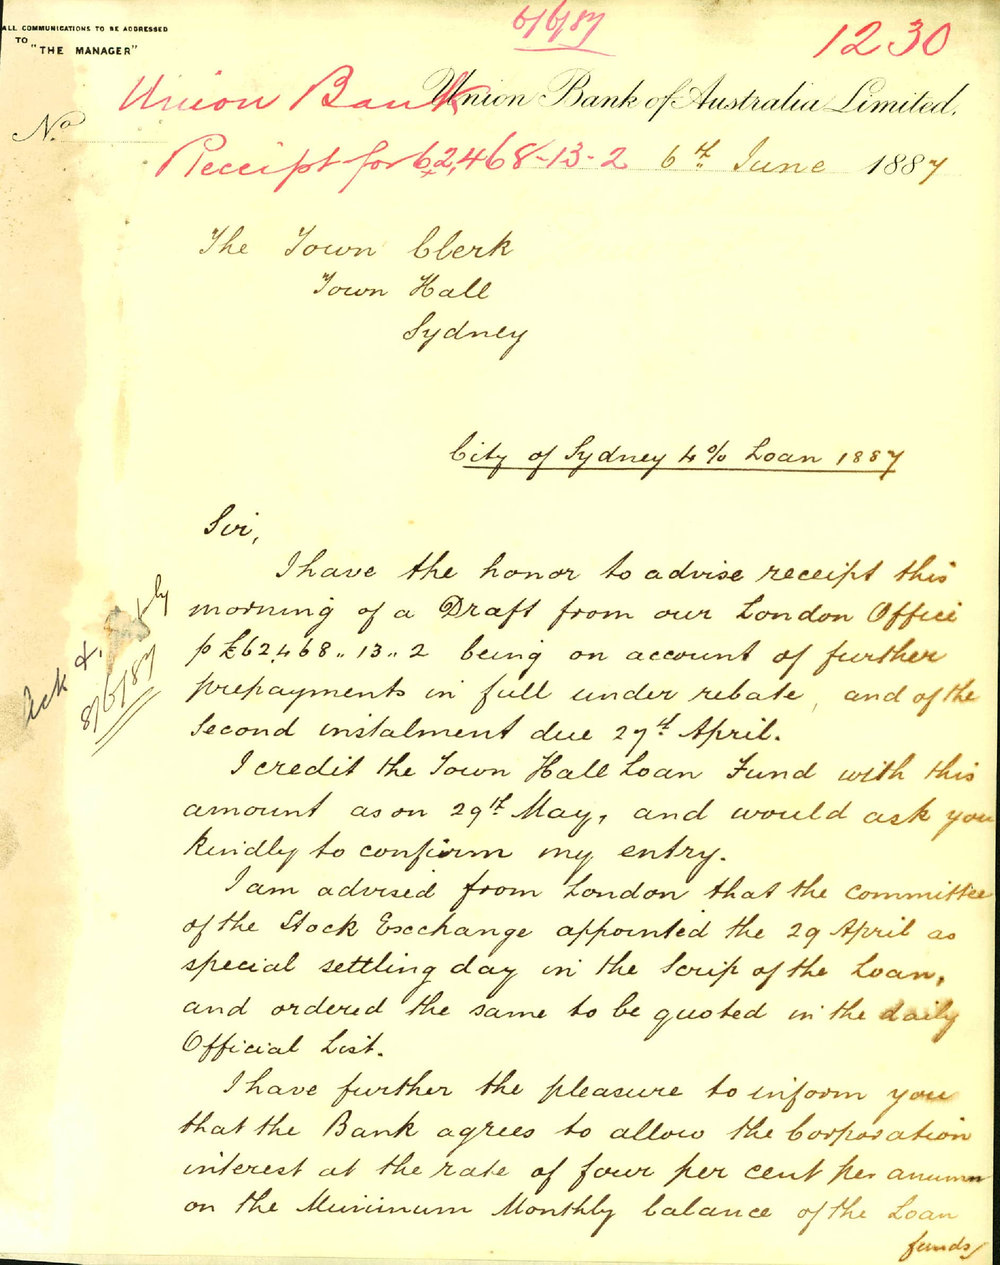 ALL COMMUNICATIONS TO BE ADDRESSED
TO
"THE MANAGER"
6/6/87
1230
Union Bank
Union Bank of Australia Limited.
No.
Receipt for 62,468-13-2
6th June 1887
The Town Clerk
Town Hall
Sydney
City of Sydney 4% Loan 1887
Sir,
I have the honor to advise receipt this
morning of a Draft from our London Office
p £62,468.. 13.. 2 being on account of further
prepayments in full under rebate, and of the
Second instalment due 27th April.
I credit the Town Hall Loan Fund with this
amount as on 29th May, and would ask you
kindly to confirm my entry.
I am advised from London that the committee
of the Stock Exchange appointed the 29 April as
special settling day in the Scrip of the Loan,
and ordered the same to be quoted in the daily
Official List.
I have further the pleasure to inform you
that the Bank agrees to allow the Corporation
interest at the rate of four per cent per anumn
on the Minimum Monthly balance of the Loan
funds/
Ack d.
8/6/87